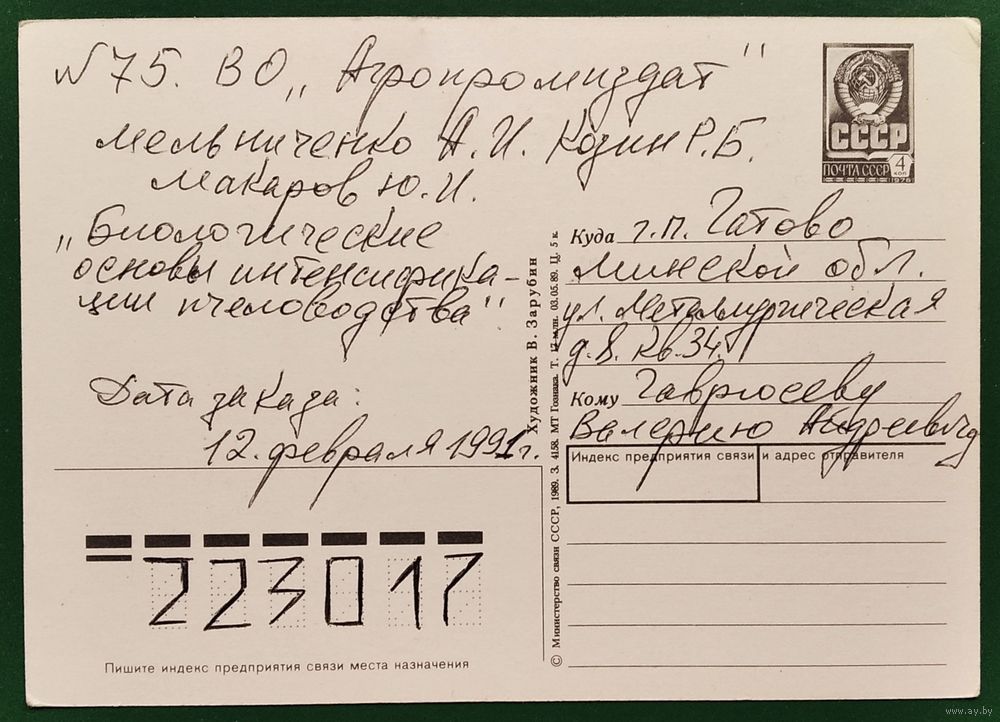 №75. ВО „Агропромиздат"
Мельниченко А.И. Козин Р.Б.
Макаров Ю.И.
„Биологические
основы интенсифика-
ции пчеловодства"
Дата заказа:
12 февраля 1991г.
223017
Пишите индекс предприятия связи места назначения
© Министерство связи СССР, 1989. З. 4158. МТ Гознака. Т. 17 млн. 03.05.89. Ц. 5 к.
Художник В. Зарубин
СССР
ПОЧТА СССР 4 коп
1976
Куда г.п. Гатово
Минской обл.
ул. Металлургическая
д.8. кв.34.
Кому Гаврюсеву
Валерию Андреевичу
Индекс предприятия связи и адрес отправителя
www.ay.by